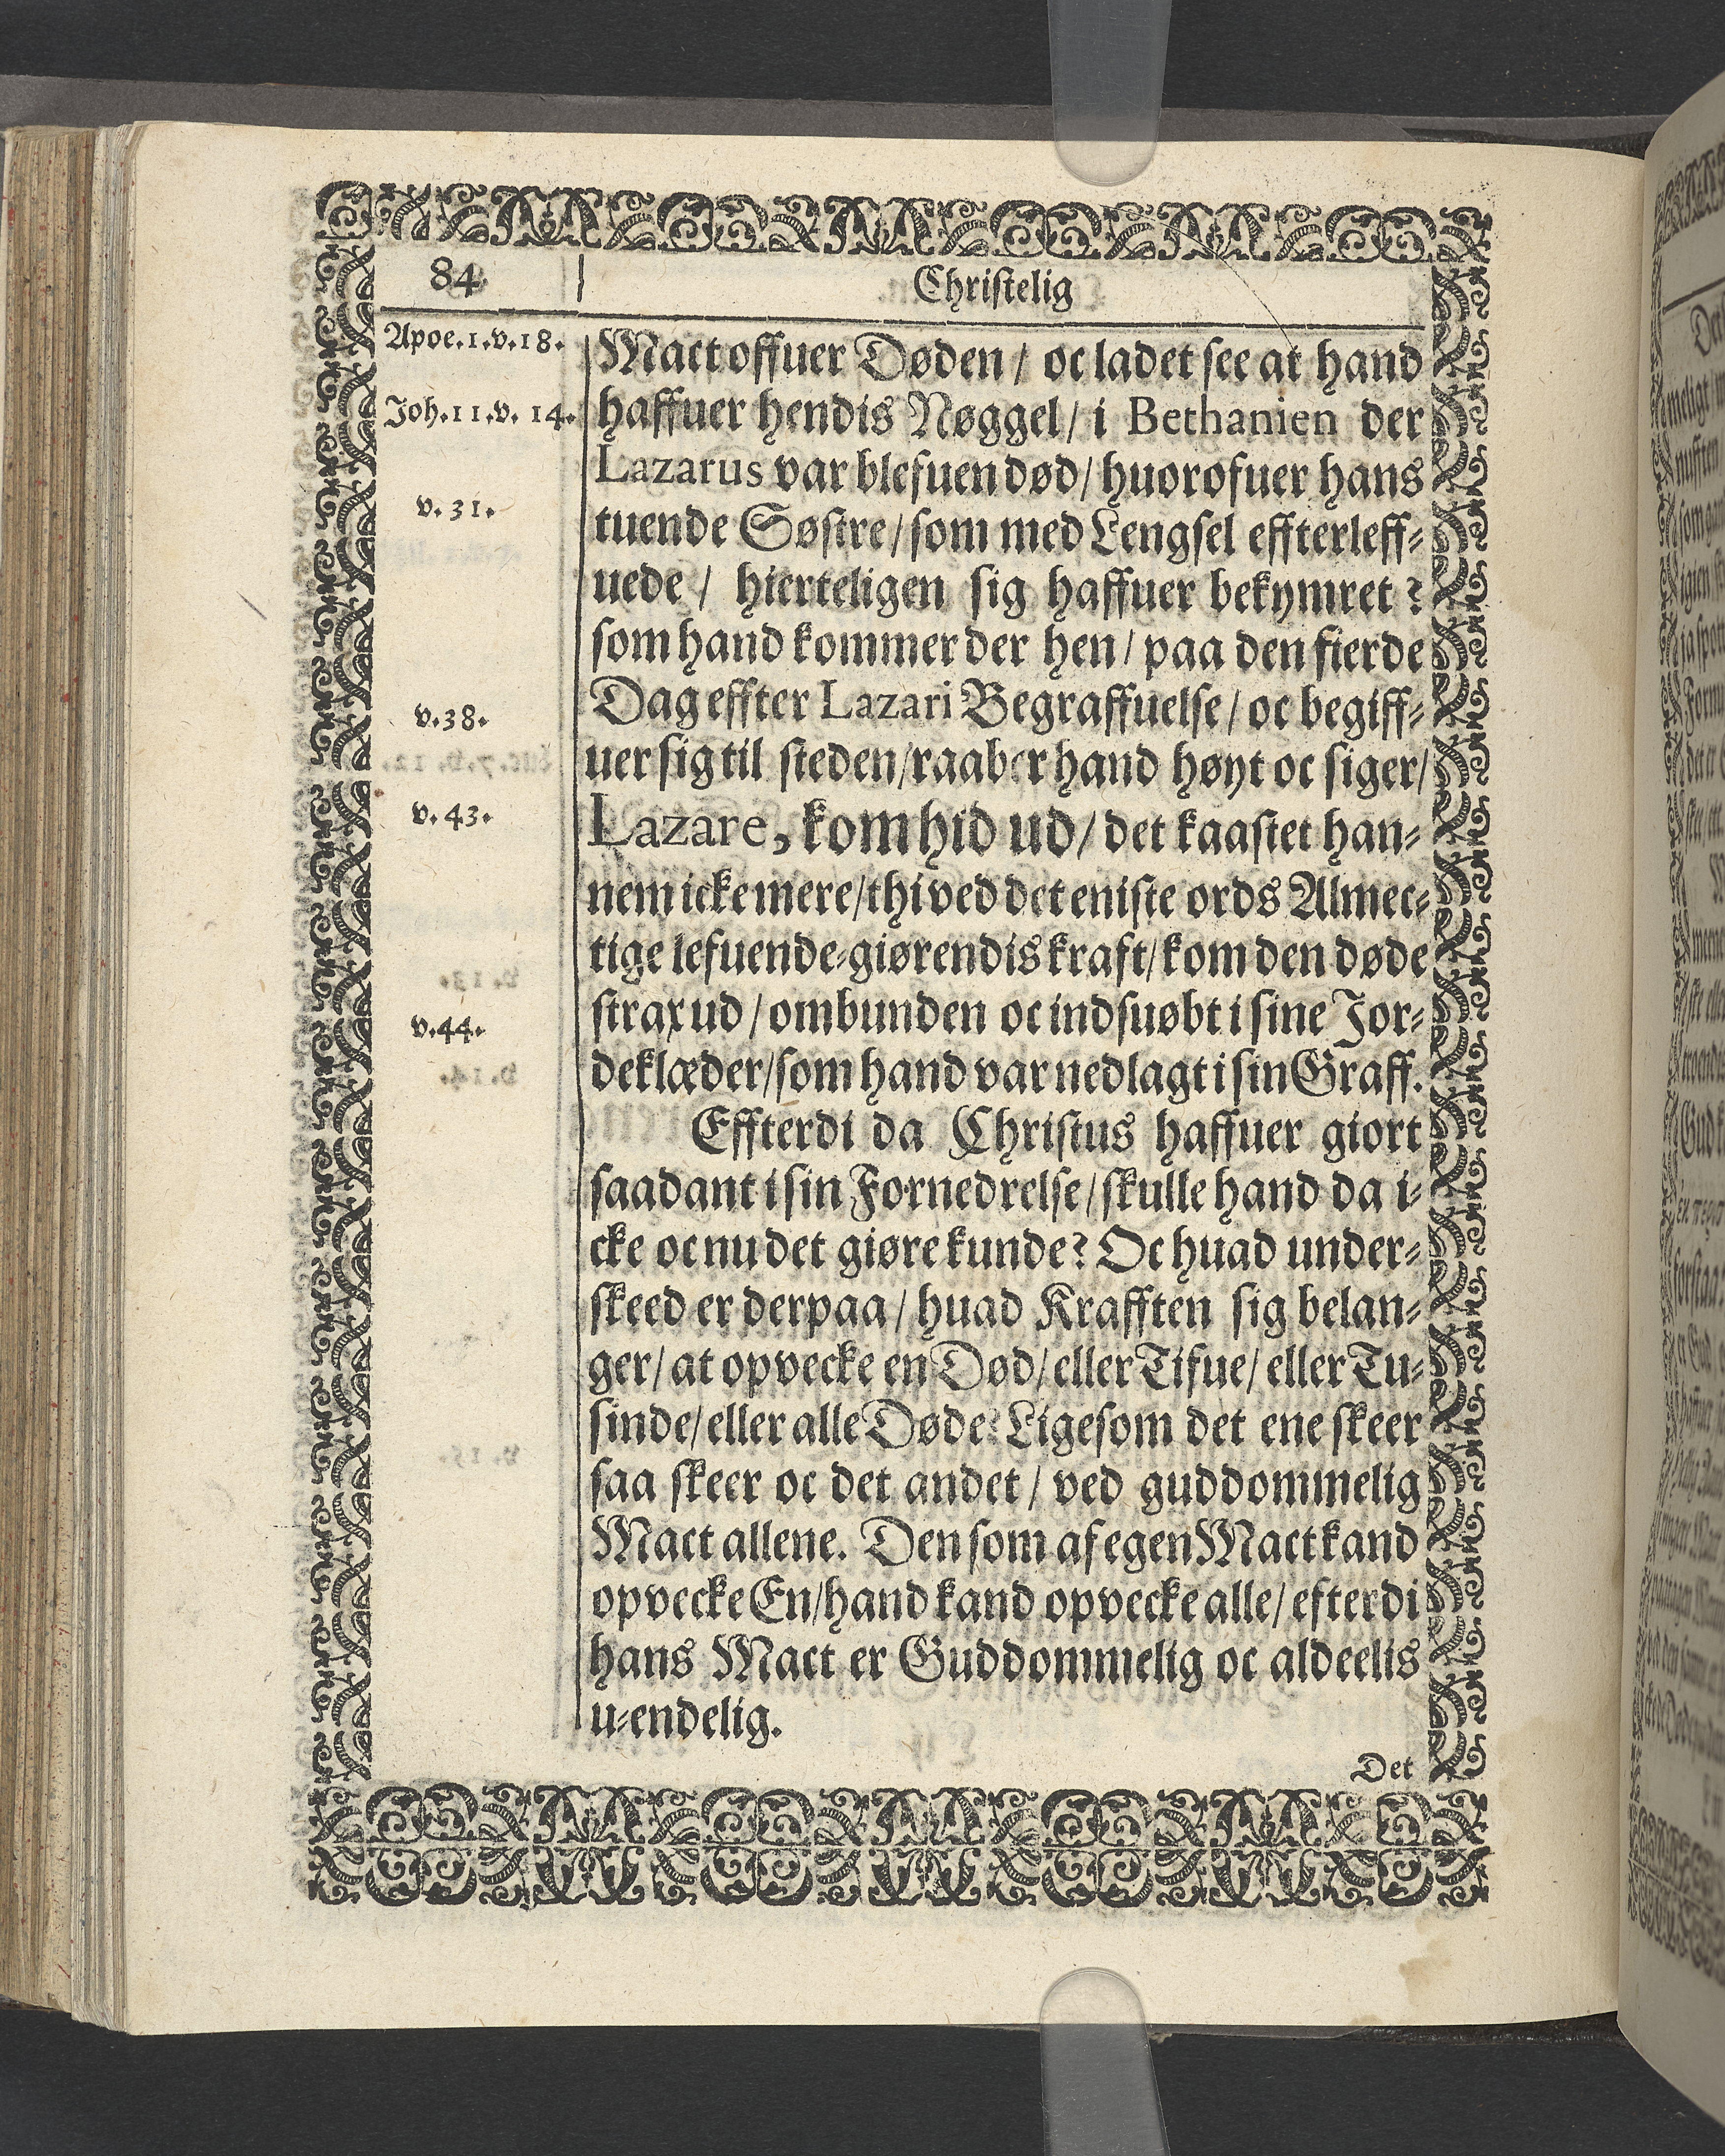 84
Christelig
Apoe.1.v.18.
Mact offuer Døden / oc ladet see at hand
Joh.11.v. 14.
haffuer hendis Nøggel / i Bethanien der
Lazarus var blefuen død / huorofuer hans
v. 31.
tuende Søstre / som med Lengsel effterleff-
uede / hierteligen sig haffuer bekymret ?
som hand kommer der hen / paa den fierde
v.38.
Dag effter Lazari Begraffuelse / oc begiff-
uer sig til steden / raaber hand høyt oc siger /
v. 43.
Lazare, kom hid ud / det kaastet han-
nem icke mere / thi ved det eniste ords Almec-
tige lefuende-giørendis kraft / kom den døde
v.44.
strax ud / ombunden oc indsuøbt i sine Jor-
deklæder / som hand var nedlagt i sin Graff.
Effterdi da Christus haffuer giort
saadant i sin Fornedrelse / skulle hand da i-
cke oc nu det giøre kunde? Oc huad under-
skeed er derpaa / huad Krafften sig belan-
ger / at opvecke en Død / eller Tifue / eller Tu-
sinde / eller alle Døde? Ligesom det ene skeer
saa skeer oc det andet / ved guddommelig
Mact allene. Den som af egen Mact kand
opvecke En / hand kand opvecke alle / efterdi
hans Mact er Guddommelig oc aldeelis
u-endelig.
Det